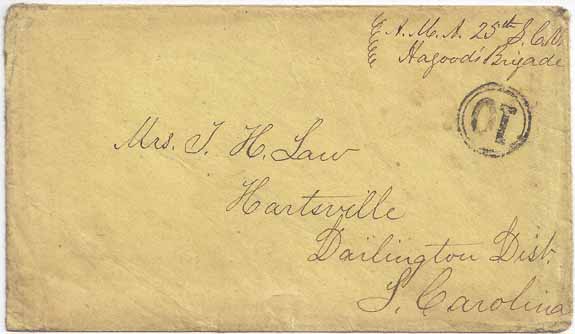 A. M. A. 25th S. C. V.
Hagood's Brigade
10
Mrs. T. H. Law
Hartsville
Darlington Dist.
S. Carolina